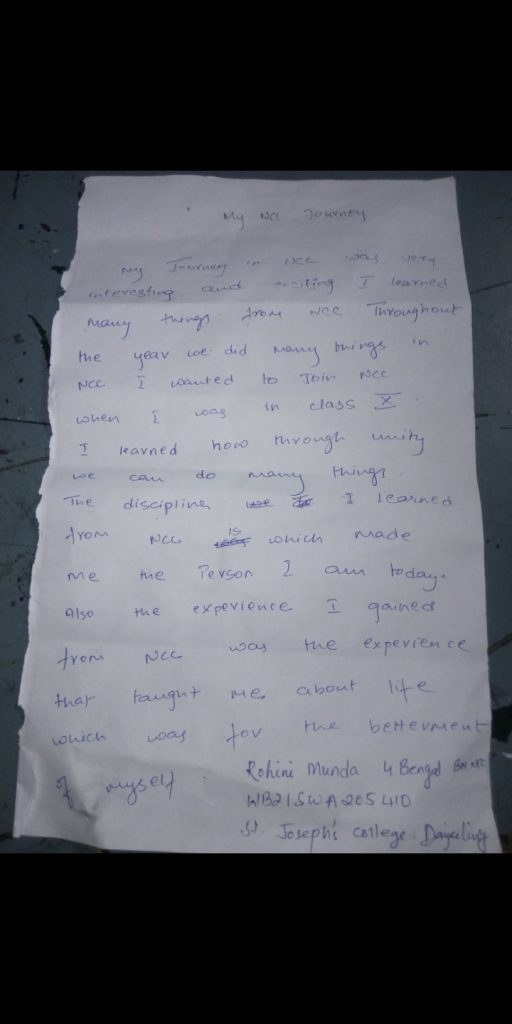 My NCC Journey
My Journey in NCC was very
interesting and exciting I learned
Many things from NCC Throughout
the year we did many things in
NCC I wanted to Join NCC
when I was in class X.
I learned how through unity
we can do many things.
The discipline I learned
from NCC is which made
me the Person I am today.
Also the experience I gained
from NCC was the experience
that taught me, about life
which was for the betterment
of myself.
Rohini Munda 4 Bengal BN NCC
WB21SWA205410
St. Joseph's college. Darjeeling